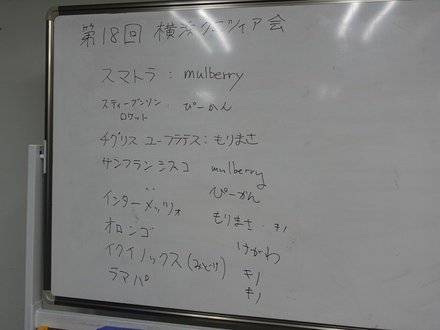 第18回 横浜クニツィア会
スマトラ : mulberry
スティーブンソン
ロケット : ぴーかん
チグリス ユーフラテス : もりまさ
サンフランシスコ mulberry
〃 ぴーかん
インターメッツォ もりまさ キノ
オロンゴ けがわ
イクイノックス(みどり) キノ
ラマパ キノ